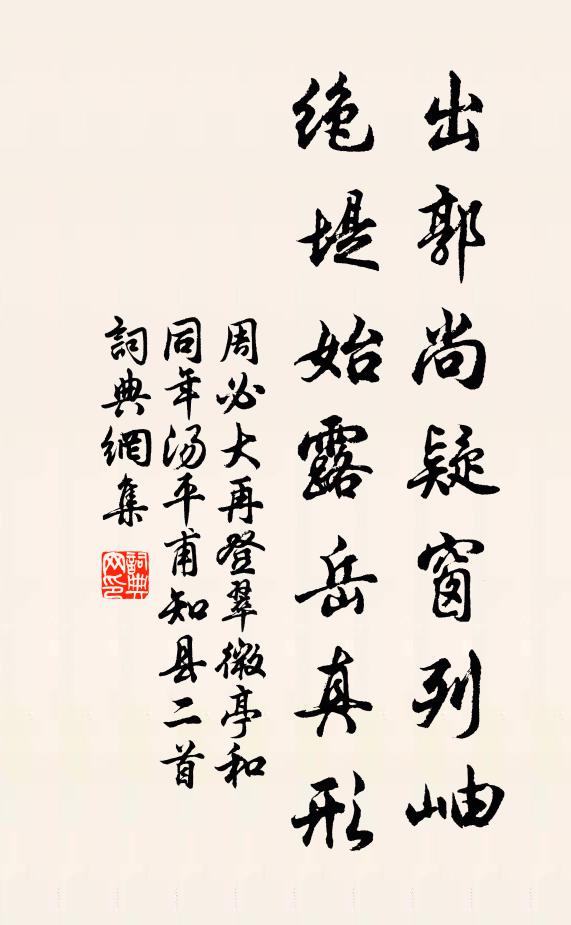 出郭尚疑窗列岫
绝堤始露岳真形
周必大再登翠微亭和
同年汤平甫知县二首
詞典網集
詞典网印